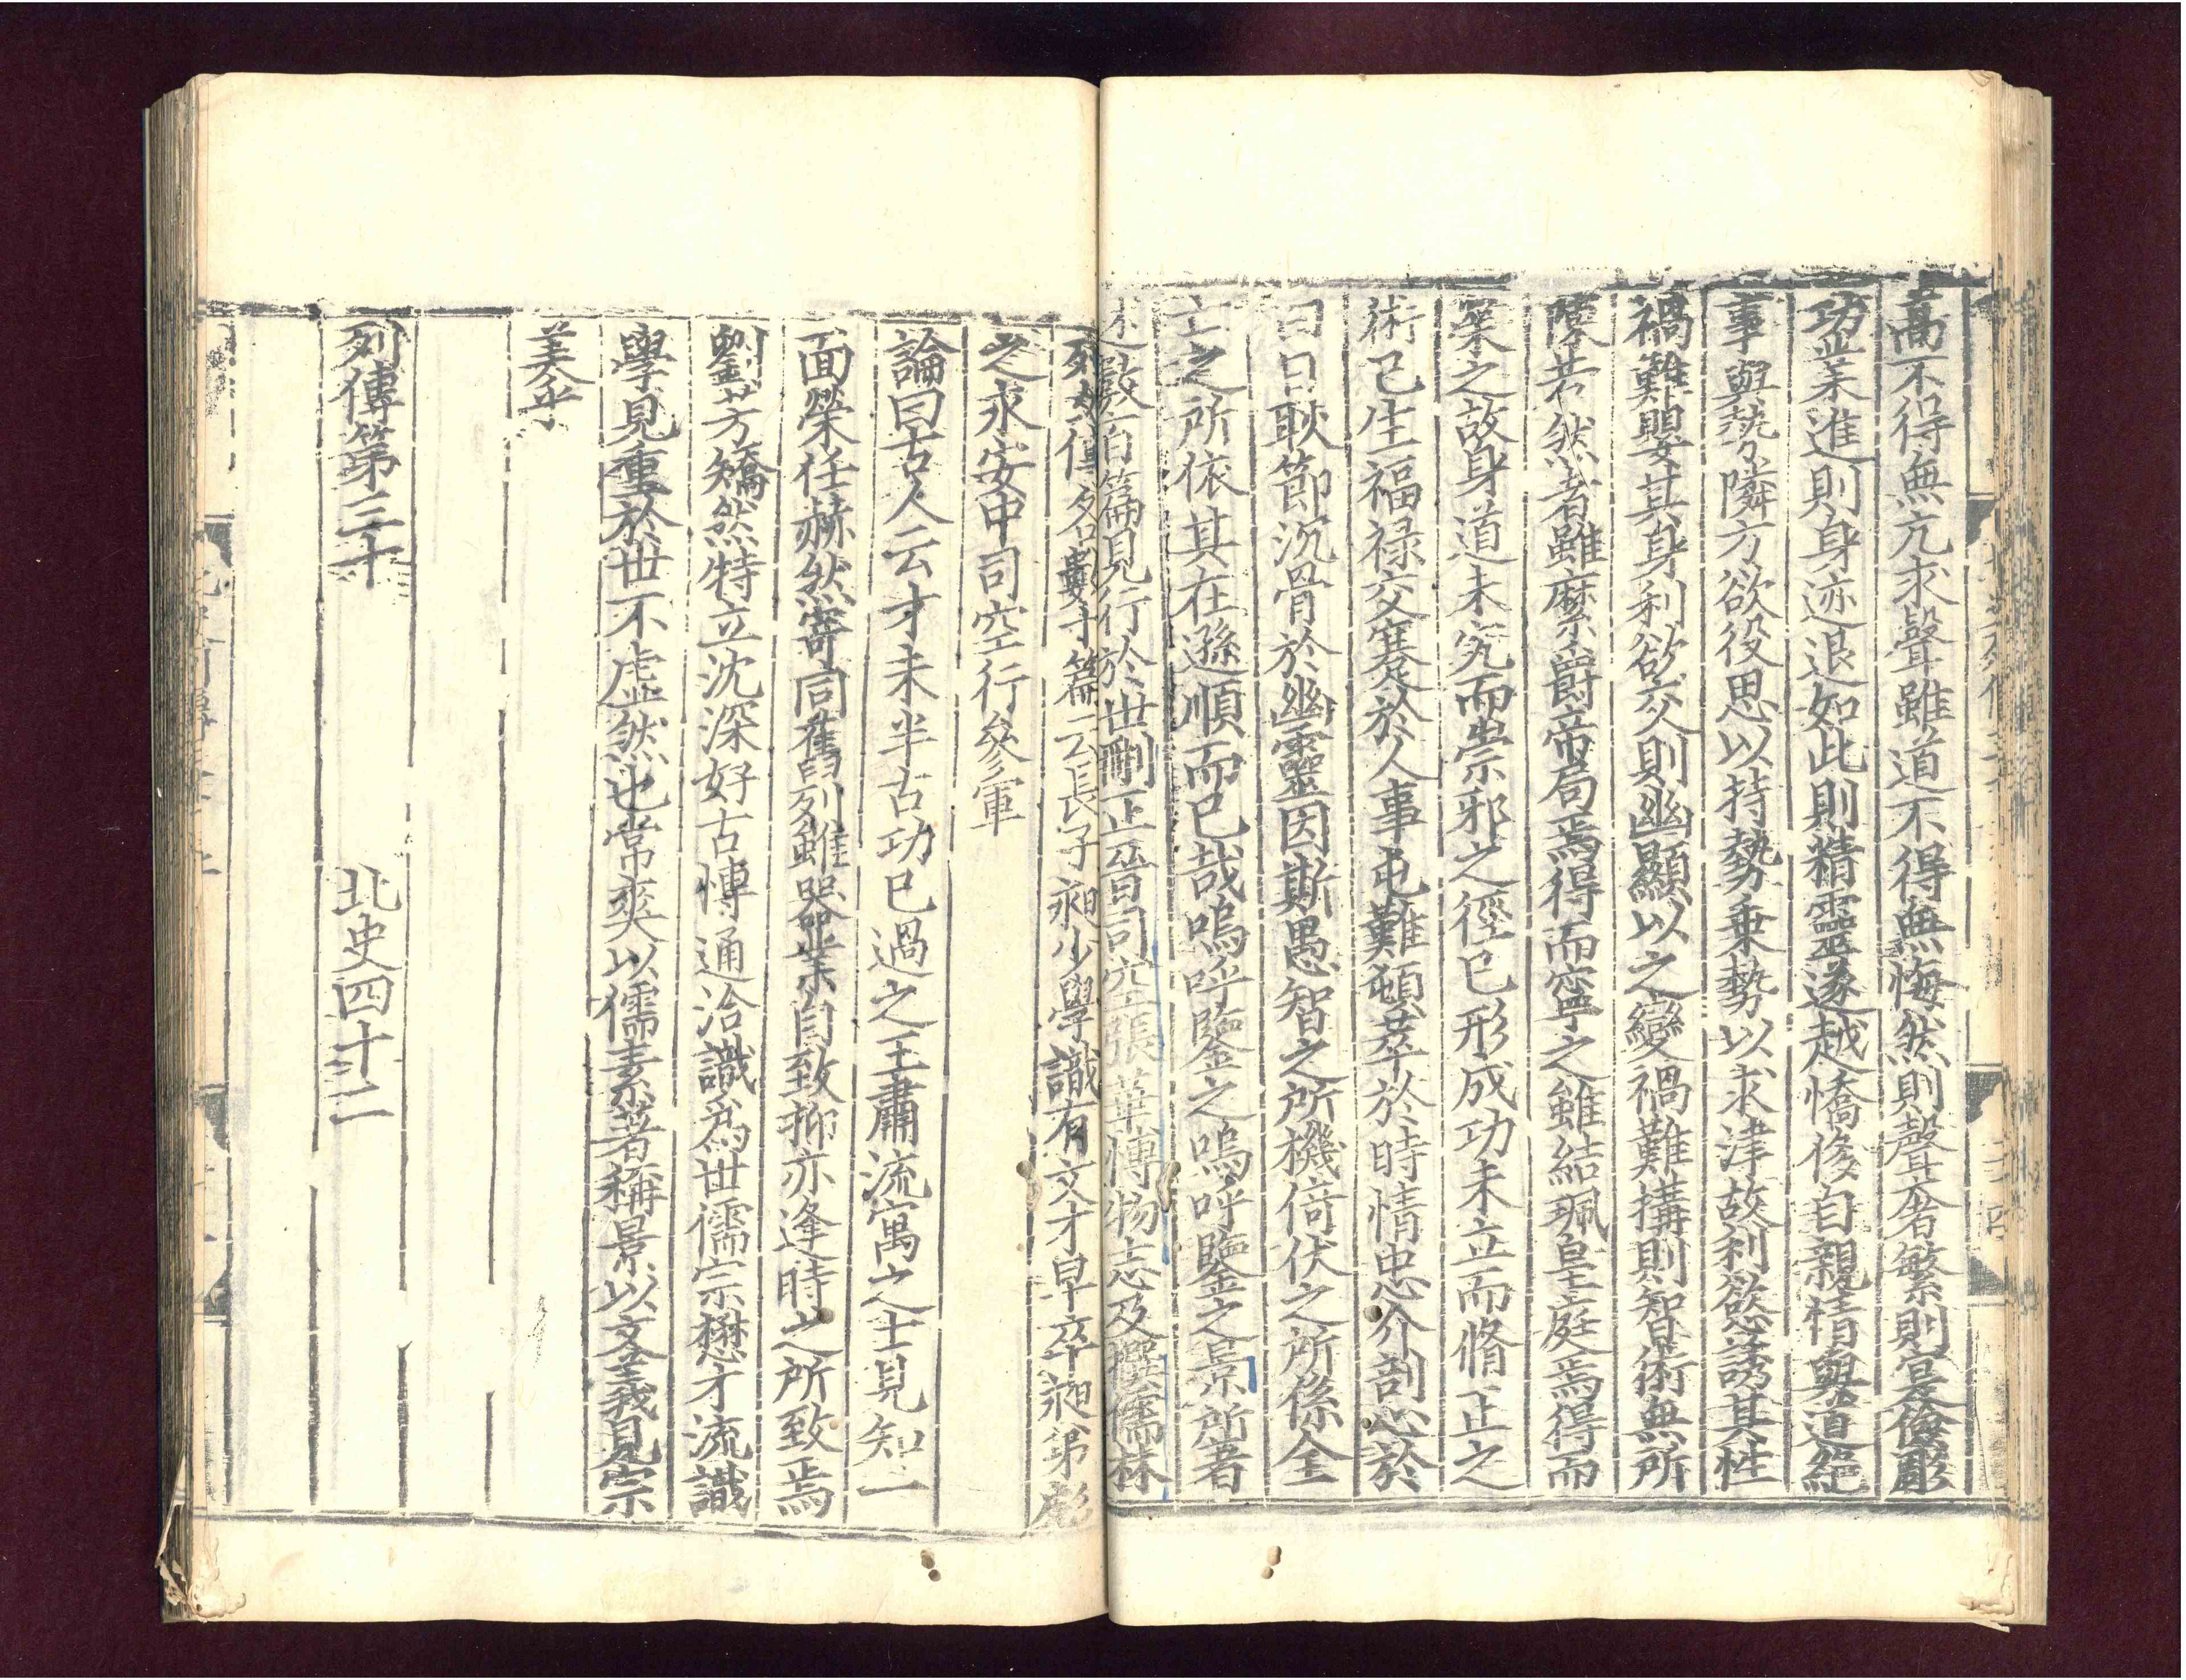 高不得無亢求聲雖道不得無悔然則聲奢繁則實儉彫
功業進則身迹退如此則精靈遂越憍侈自親情與道絕
事與勢隣方欲役思以持勢乗勢以求津故利慾誘其性
禍難嬰其身利欲交則幽顯以之變禍難搆則智術無所
陳若然者雖縻爵帝局焉得而寧之雖結珮皇庭焉得而
榮之故身道未究而崇邪之徑已形成功未立而脩正之
術已生福禄交蹇於人事屯難頓萃於時情忠介剖心於
白日耿節沉骨於幽靈因斯愚智之所機倚伏之所係全
亡之所依其在遜順而已哉嗚呼鑒之嗚呼鑒之景所著
述數百篇見行於世刪正晉司空張華博物志及撰儒林
列女傳各數十篇云長子昶少學識有文才早卒昶弟彪
之永安中司空行參軍
論曰古人云才未半古功已過之王肅流寓之士見知一
面榮任赫然寄同舊列雖器業自致抑亦逢時之所致焉
劉芳矯然特立沈深好古博通洽識爲世儒宗懋才流識
學見重於世不虛然也常爽以儒素著稱景以文義見宗
美乎
列傳第三十
北史四十二